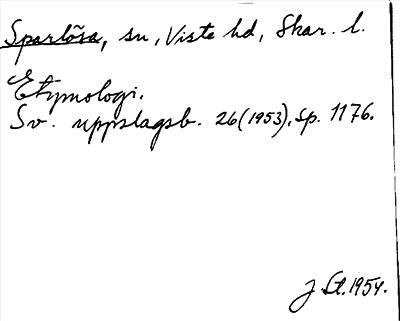 Sparlösa, sn, Viste hd, Skar. l.
Etymologi.
Sv. uppslagsb. 26 (1953), sp. 1176.
J. St. 1954.